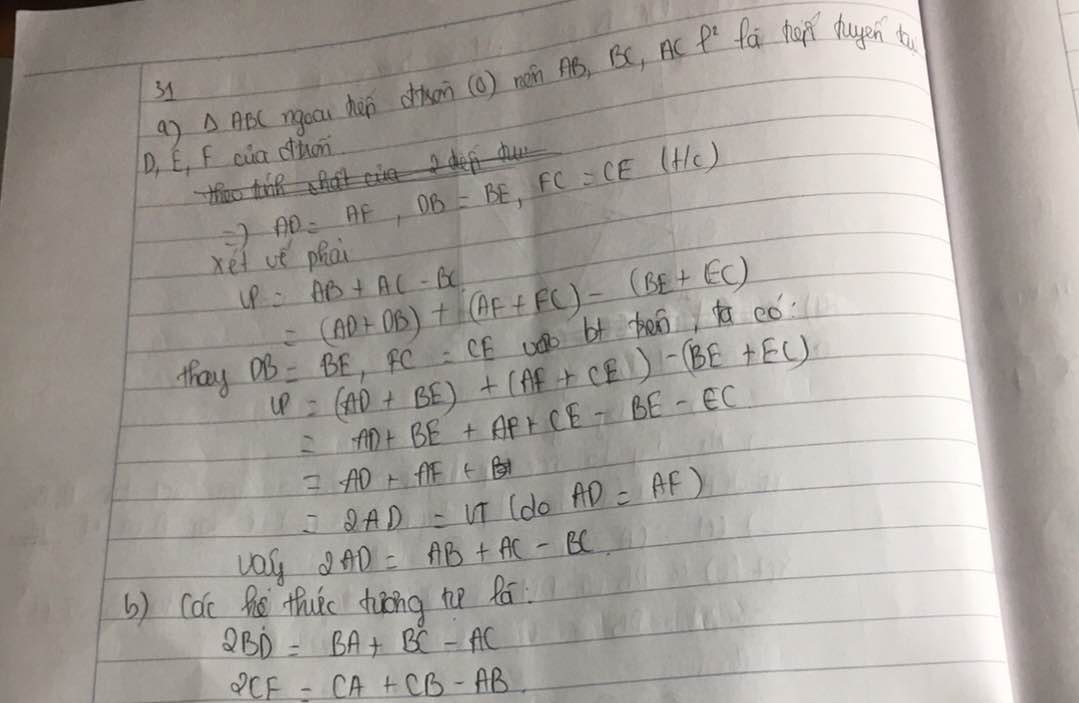 31
a) Δ ABC ngoại tiếp đtròn (O) nên AB, BC, AC l² là tiếp tuyến tại
D, E, F của đtròn.
theo tính chất của 2 tiếp tuy
=> AD = AF, DB = BE, FC = CE (t/c)
xét vế phải
VP = AB + AC - BC
= (AD + DB) + (AF + FC) - (BE + EC)
thay DB = BE, FC = CE vào bt trên, ta có:
VP = (AD + BE) + (AF + CE) - (BE + EC)
= AD + BE + AF + CE - BE - EC
= AD + AF +
= 2AD = VT (do AD = AF)
Vậy 2AD = AB + AC - BC.
b) Các hệ thức tương tự là:
2BD = BA + BC - AC
2CF = CA + CB - AB.